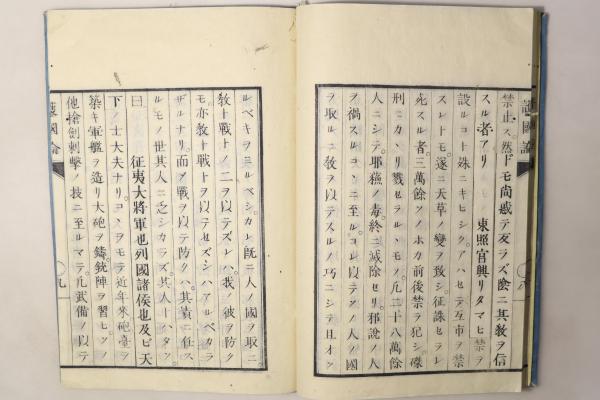 禁止ス然ドモ尚惑テ反ラズ陰ニ其教ヲ信
スル者アリ 東照宮興リタマヒ禁ヲ
設ルコト殊ニキビシクアハセテ互市ヲ禁
スレトモ遂ニ天草ノ變ヲ致シ征誅セラレ
死スル者三萬餘ソノホカ前後禁ヲ犯シ磔
刑ニカヽリ戮セラルヽモノ凡二十八萬餘
人ニシテ邪蘓ノ毒終ニ滅除セリ邪說ノ人
ヲ禍スルコヽニ至ルコレ以テソノ人ノ國
ヲ取ルニ敎ヲ以テスルノ巧ニシテ且オソ
護國論
八
ルベキヲミルベシカレ既ニ人ノ國ヲ取ニ
敎ト戰トノ二ヲ以テスレハ我ノ彼ヲ防ク
モ亦敎ト戰トヲ以テセズンハアルベカラ
ザルナリ而ノ戰ヲ以テ防クハ其責ニ任ス
ルモノ世其人ニ乏シカラス其人トハタソ
曰 征夷大將軍也列國諸侯也及ビ天
下ノ士大夫ナリコヽヲモテ近年來砲臺ヲ
築キ軍艦ヲ造リ大砲ヲ鑄銃陣ヲ習ヒソノ
他槍劍刺擊ノ技ニ至ルマテ凡武備ノ以テ
護國論
九